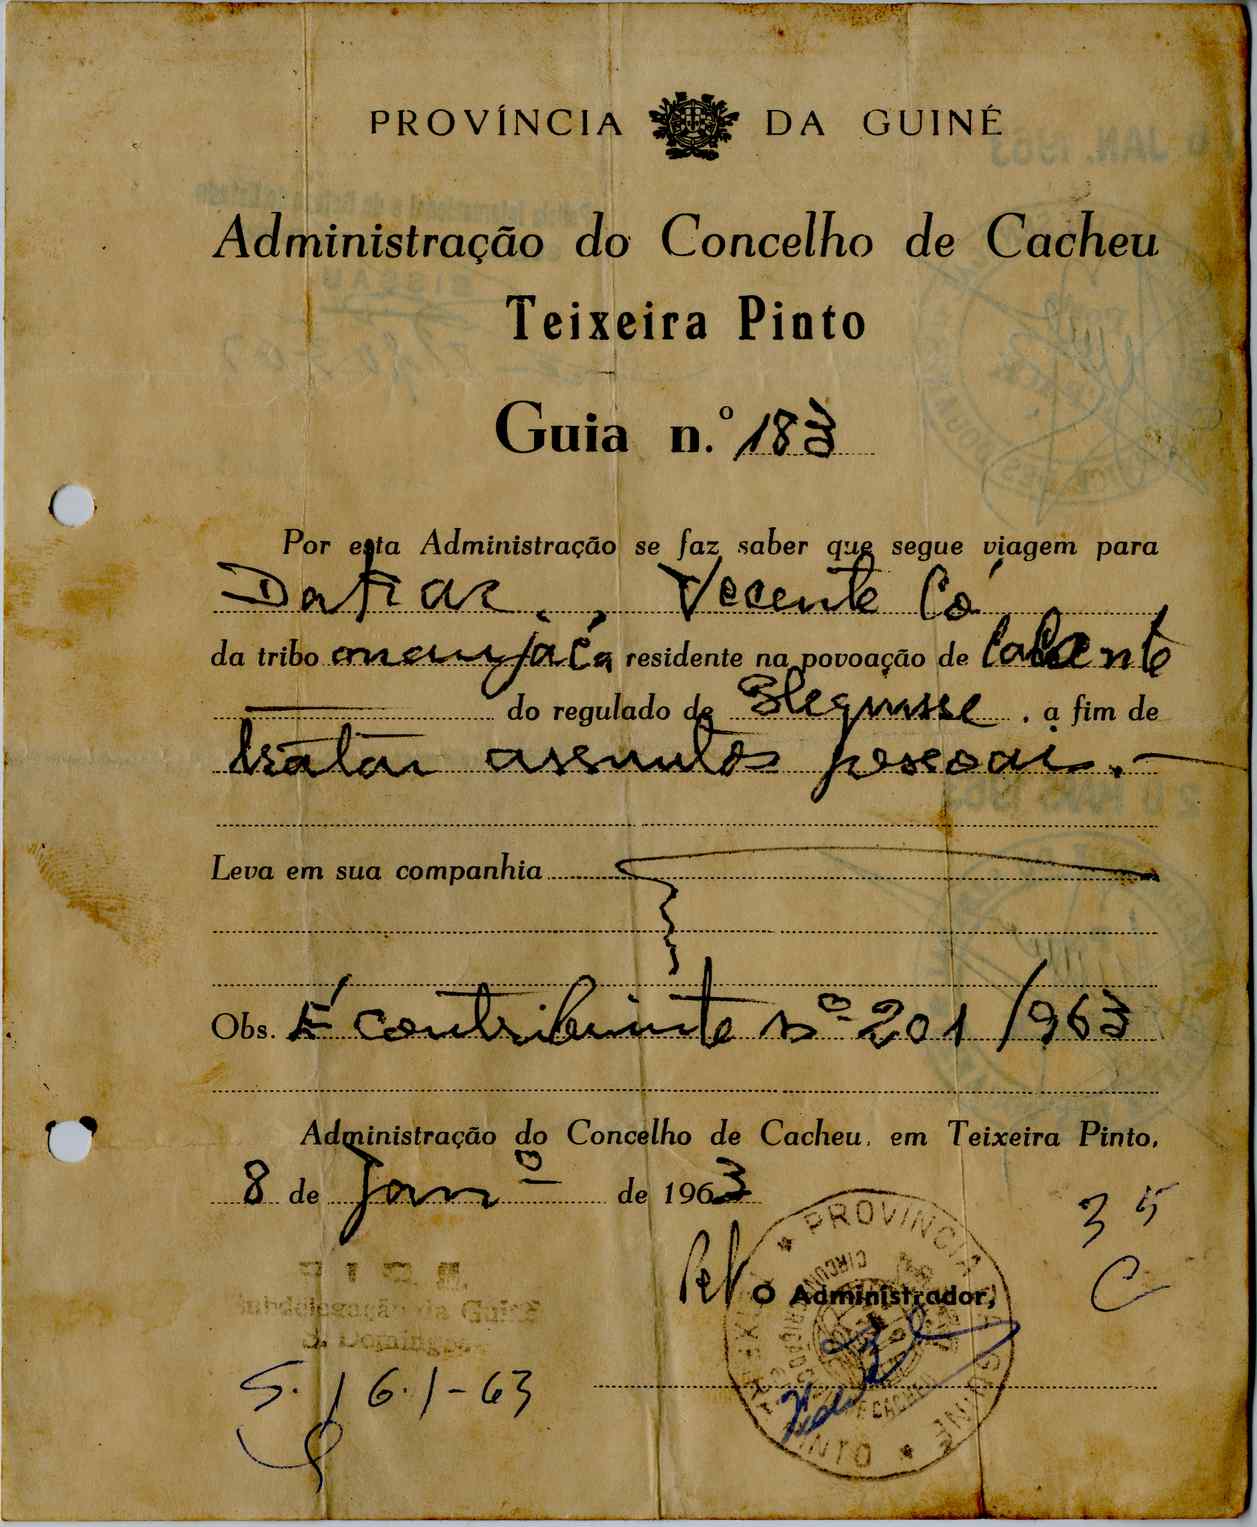 PROVÍNCIA DA GUINÉ
Administração do Concelho de Cacheu
Teixeira Pinto
Guia n.º 183
Por esta Administração se faz saber que segue viagem para
Dakar, Vecente Cá
da tribo manjáca residente na povoação de Calente
do regulado de Blequisse, a fim de
tratar assuntos pessoais.
Leva em sua companhia
Obs. É contribuinte nº 201/963
Administração do Concelho de Cacheu, em Teixeira Pinto,
8 de Janº de 1963
35
C
Pel O Administrador,
PROVÍNCIA DA GUINÉ
TEIXEIRA PINTO
P I D E
Subdelegação da Guiné
S. Domingos
S. 16.1-63